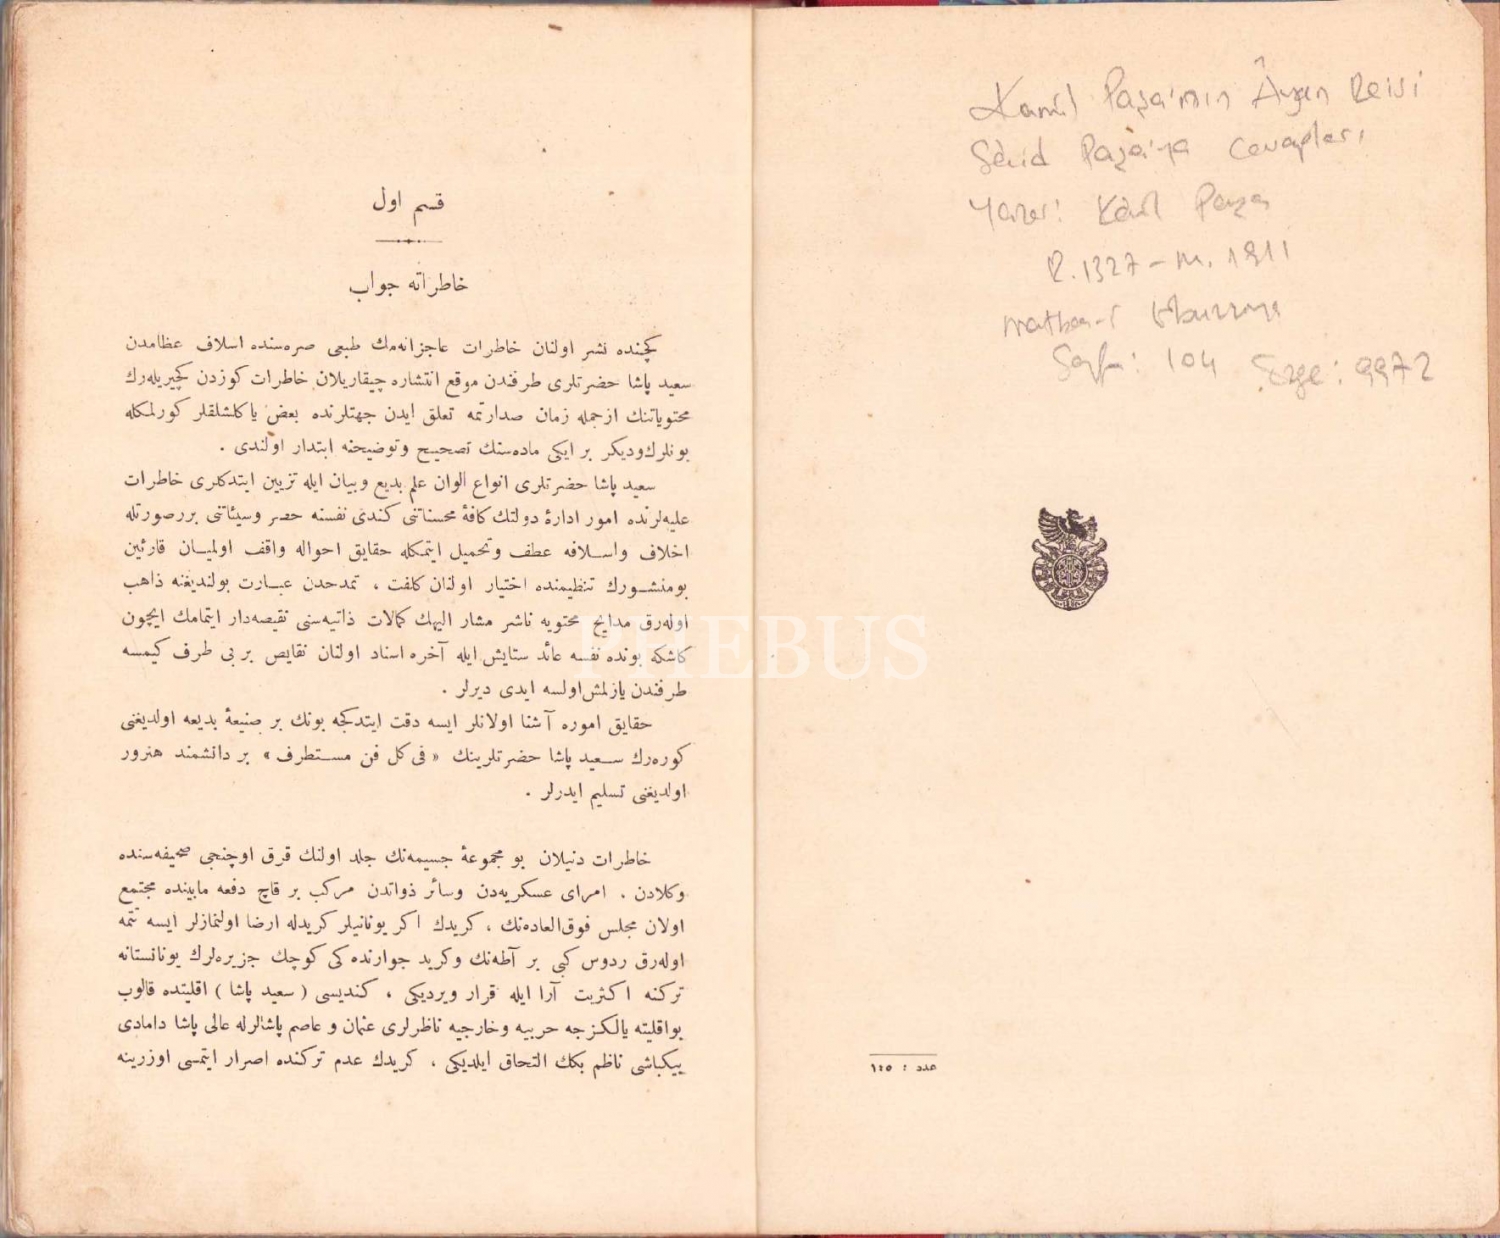 Kamil Paşa'nın Âyan Reisi
Said Paşa'ya Cevapları
Yazar: Kâmil Paşa
R.1327 - M. 1911
Matbaa-i Ebuzziya
Sayfa: 104 Özge: 9972
عدد : ١٤٥
قسم اول
خاطراته جواب
كچنده نشر اولنان خاطرات عاجزانه‌مك طبعی صره‌سنده اسلاف عظامدن
سعید پاشا حضرتلری طرفندن موقع انتشاره چیقاریلان خاطرات كوزدن كچیریله‌رك
محتویاتنك ازجمله زمان صدارتمه تعلق ایدن جهتلرنده بعض یاكلشلقلر كورلمكله
بونلرك ودیكر بر ایكی ماده‌سنك تصحیح وتوضیحنه ابتدار اولندی .
سعید پاشا حضرتلری انواع الوان علم بدیع وبیان ایله تزیین ایتدكلری خاطرات
علیه‌لرنده امور ادارهٔ دولتك كافهٔ محسناتنی كندی نفسنه حصر وسیئاتنی بررصورتله
اخلاف واسلافه عطف وتحمیل ایتمكله حقایق احواله واقف اولمیان قارئین
بومنشورك تنظیمنده اختیار اولنان كلفت ، تمدحدن عبارت بولندیغنه ذاهب
اوله‌رق مدایح محتویه ناشر مشار الیهك كمالات ذاتیه‌سنی نقیصه‌دار ایتمامك ایچون
كاشكه بونده نفسه عائد ستایش ایله آخره اسناد اولنان نقایص بر بی طرف كیمسه
طرفندن یازلمش اولسه ایدی دیرلر .
حقایق اموره آشنا اولانلر ایسه دقت ایتدكجه بونك بر صنیعهٔ بدیعه اولدیغنی
كوره‌رك سعید پاشا حضرتلرینك « فی كل فن مستطرف » بر دانشمند هنرور
اولدیغنی تسلیم ایدرلر .
خاطرات دنیلان بو مجموعهٔ جسیمه‌نك جلد اولنك قرق اوچنجی صحیفه‌سنده
وكلادن . امرای عسكریه‌دن وسائر ذواتدن مركب بر قاچ دفعه مابینده مجتمع
اولان مجلس فوق‌العاده‌نك ، كریدك اكر یونانیلر كریدله ارضا اولنمازلر ایسه تتمه
اوله‌رق ردوس كبی بر آطه‌نك وكرید جوارنده كی كوچك جزیره‌لرك یونانستانه
تركنه اكثریت آرا ایله قرار ویردیكی ، كندیسی ( سعید پاشا ) اقلیتده قالوب
بواقلیته یالكزجه حربیه وخارجیه ناظرلری عثمان و عاصم پاشالرله عالی پاشا دامادی
بیكباشی ناظم بكك التحاق ایلدیكی ، كریدك عدم تركنده اصرار ایتمسی اوزرینه
PHEBUS